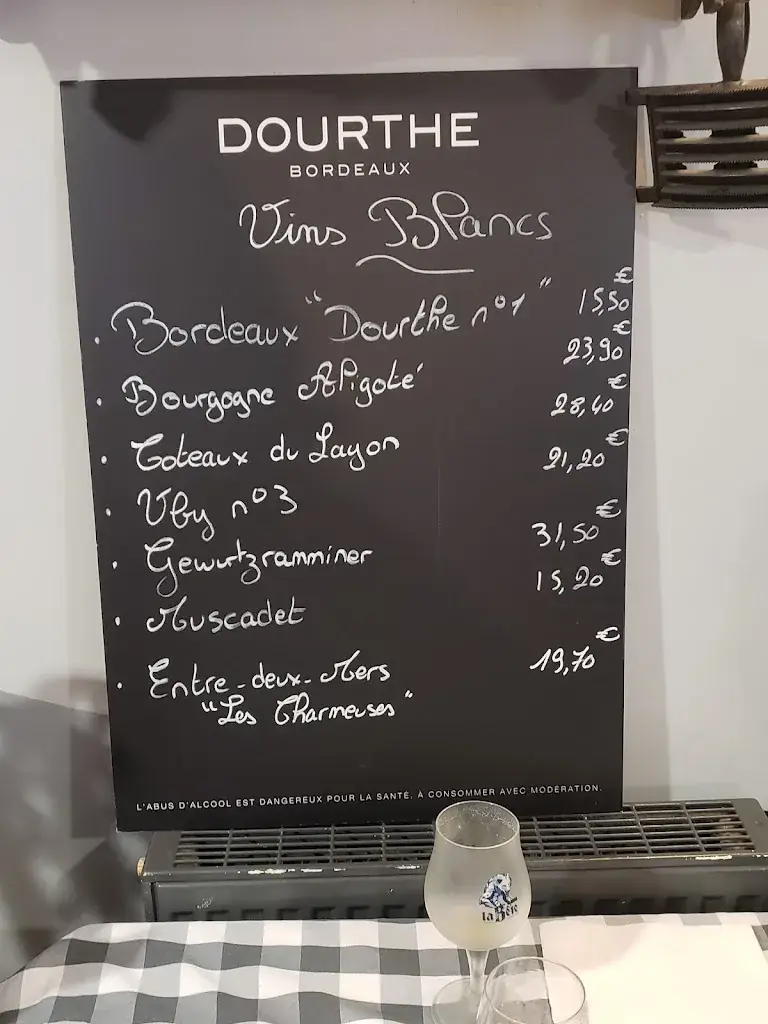 DOURTHE
BORDEAUX
Vins Blancs
. Bordeaux "Dourthe n°1" 15,50 €
. Bourgogne Aligoté 23,90 €
. Coteaux du Layon 28,40 €
. Uby n°3 21,20 €
. Gewurtzramminer 31,50 €
. Muscadet 15,20 €
. Entre-deux-Mers 19,70 €
"Les Charmeuses"
L'ABUS D'ALCOOL EST DANGEREUX POUR LA SANTÉ. À CONSOMMER AVEC MODÉRATION.
la Bête